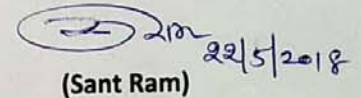 राम 22/5/2018
(Sant Ram)